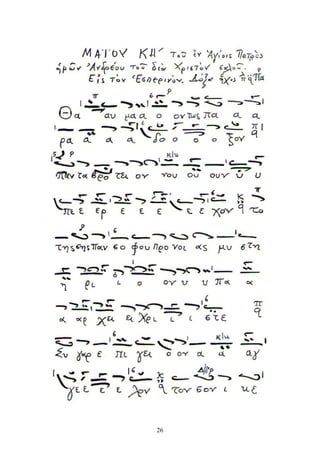 ΜΑΪΟΥ ΚΗ' τοῦ ἐν Ἁγίοις Πατρὸς
ἡμῶν Ἀνδρέου τοῦ διὰ Χριστὸν σαλοῦ.
Εἰς τὸν Ἑσπερινόν. Δόξα ἦχος Πα
Θα αυ μα α ο οντως πα α α
ρα α α α δο ο ο ξον
παν τα βρο τει ον νου ου ουν υ υ
πε ε ερ ε ε ε ε ε χον το
της σης παν σο φου προ νοι ας μυ στη
η ρι ι ο ον υ υ πα α
α αρ χει ει Χρι ι ι στε
Συ γαρ ε πι γει ο ον α α αγ
γε ε ε ε λον τον σον ι κε
26